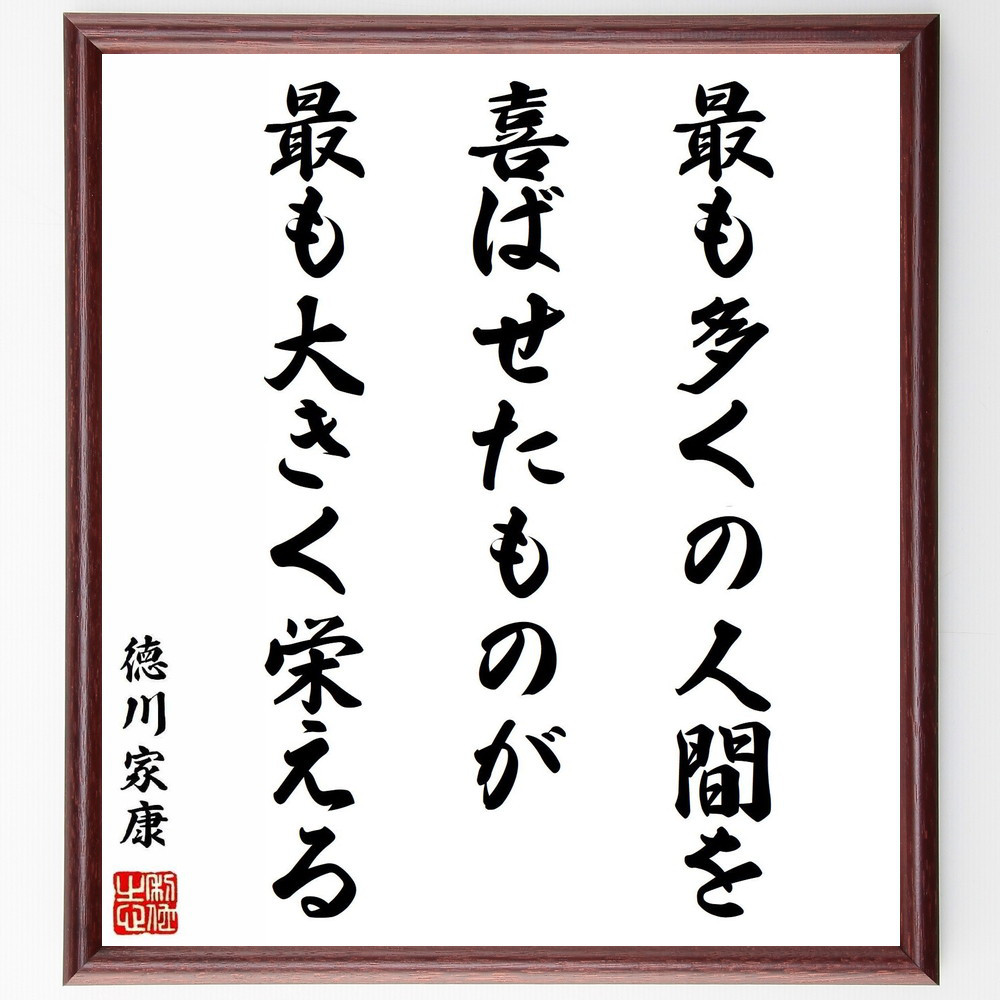 最も多くの人間を
喜ばせたものが
最も大きく栄える
徳川家康